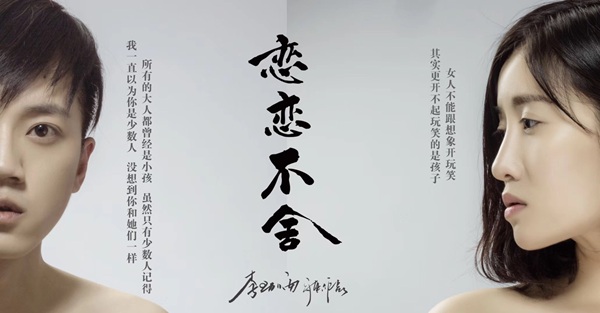 女人不能跟想象开玩笑
其实更开不起玩笑的是孩子
恋恋不舍
所有的大人都曾经是小孩 虽然只有少数人记得
我一直以为你是少数人 没想到你和她们一样